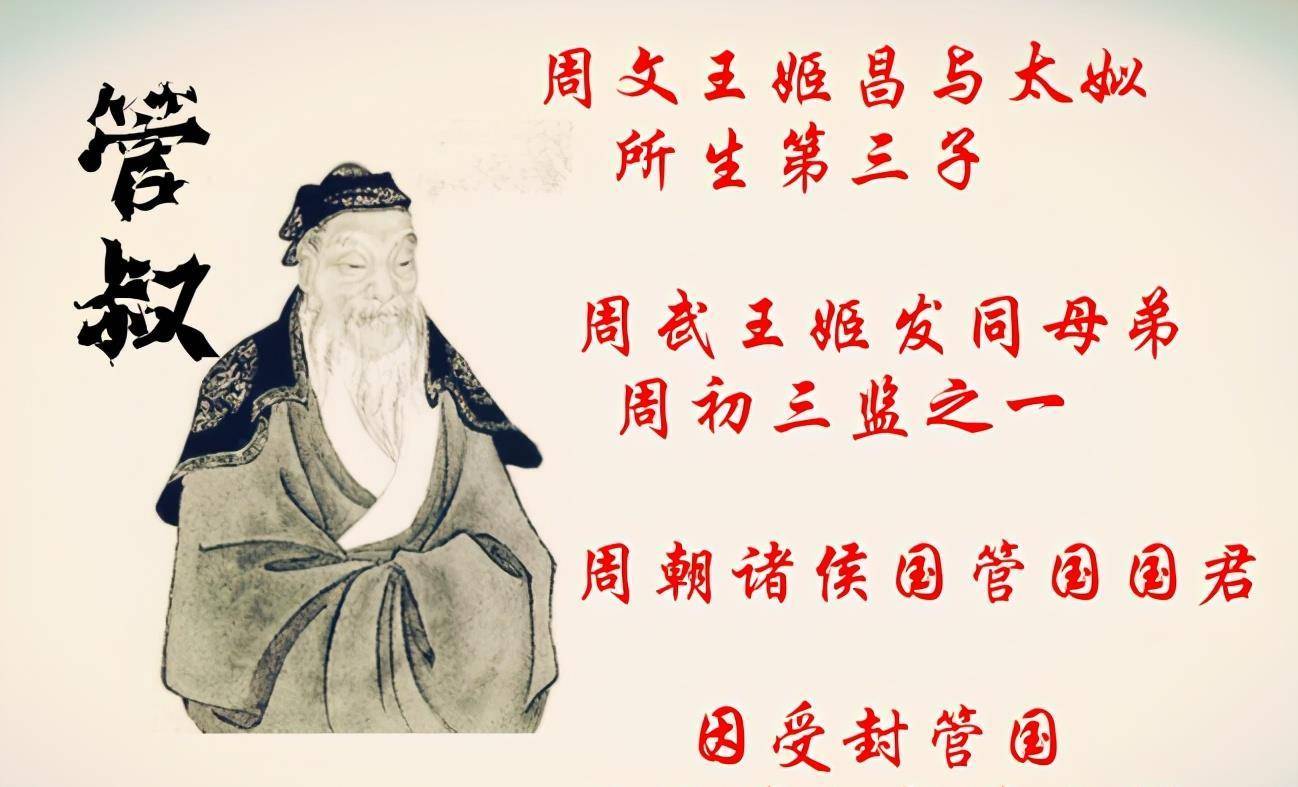 管叔
周文王姬昌与太姒
所生第三子
周武王姬发同母弟
周初三监之一
周朝诸侯国管国国君
因受封管国